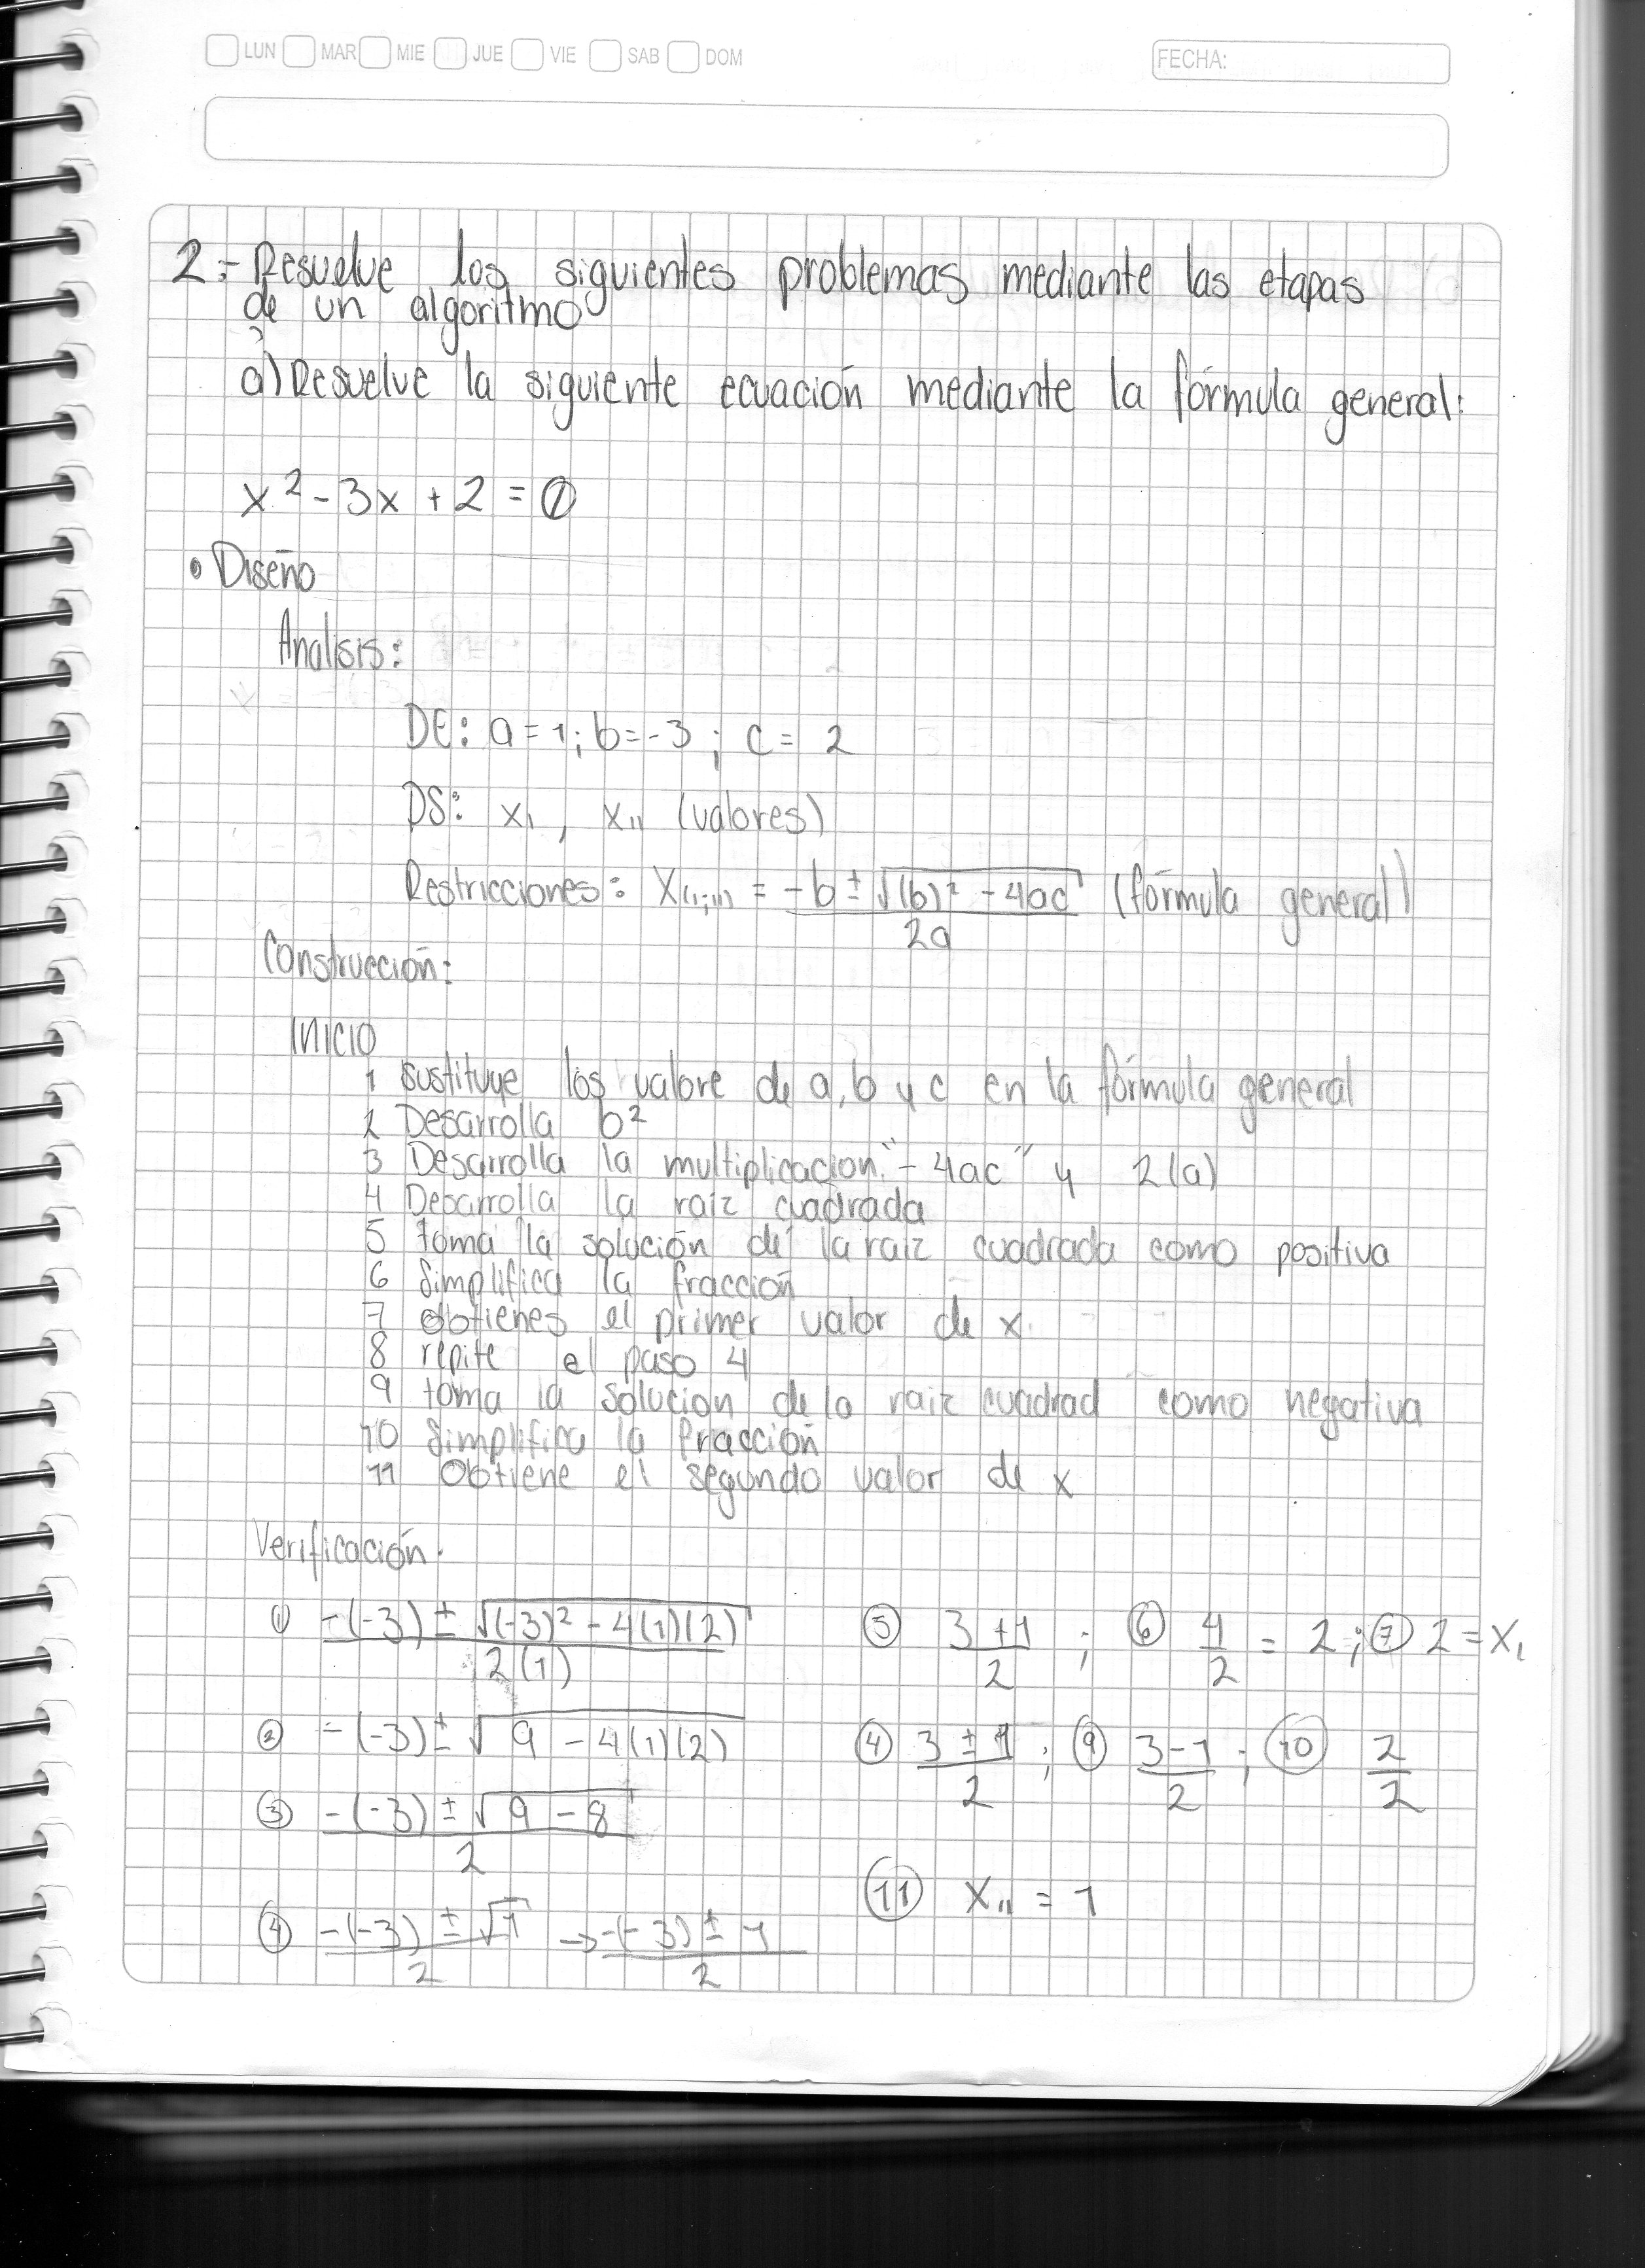 LUN MAR MIE JUE VIE SAB DOM
FECHA:
2.- Resuelve los siguientes problemas mediante las etapas
de un algoritmo
a) Resuelve la siguiente ecuación mediante la fórmula general:
x² - 3x + 2 = 0
• Diseño
Analisis:
DE: a = 1; b = -3; c = 2
DS: x₁, x₁₁ (valores)
Restricciones: X(₁;₁₁) = -b ± √(b)² - 4ac (fórmula general)
2a
Construcción:
INICIO
1 sustituye los valore de a, b y c en la fórmula general
2 Desarrolla b²
3 Desarrolla la multiplicacion "- 4ac" y 2(a)
4 Desarrolla la raiz cuadrada
5 toma la solución de la raiz cuadrada como positiva
6 Simplifica la fracción
7 obtienes el primer valor de x
8 repite el paso 4
9 toma la solucion de la raiz cuadrad como negativa
10 Simplifica la fracción
11 Obtiene el segundo valor de x
Verificación.
① -(-3) ± √(-3)² - 4(1)(2)
2(1)
② -(-3) ± √9 - 4(1)(2)
③ -(-3) ± √9 - 8
2
④ -(-3) ± √1 → -(-3) ± 1
2 2
⑤ 3 + 1 ; ⑥ 4 = 2 ; ⑦ 2 = x₁
2 2
④ 3 ± 1 ; ⑨ 3 - 1 ; ⑩ 2
2 2 2
⑪ x₁₁ = 1